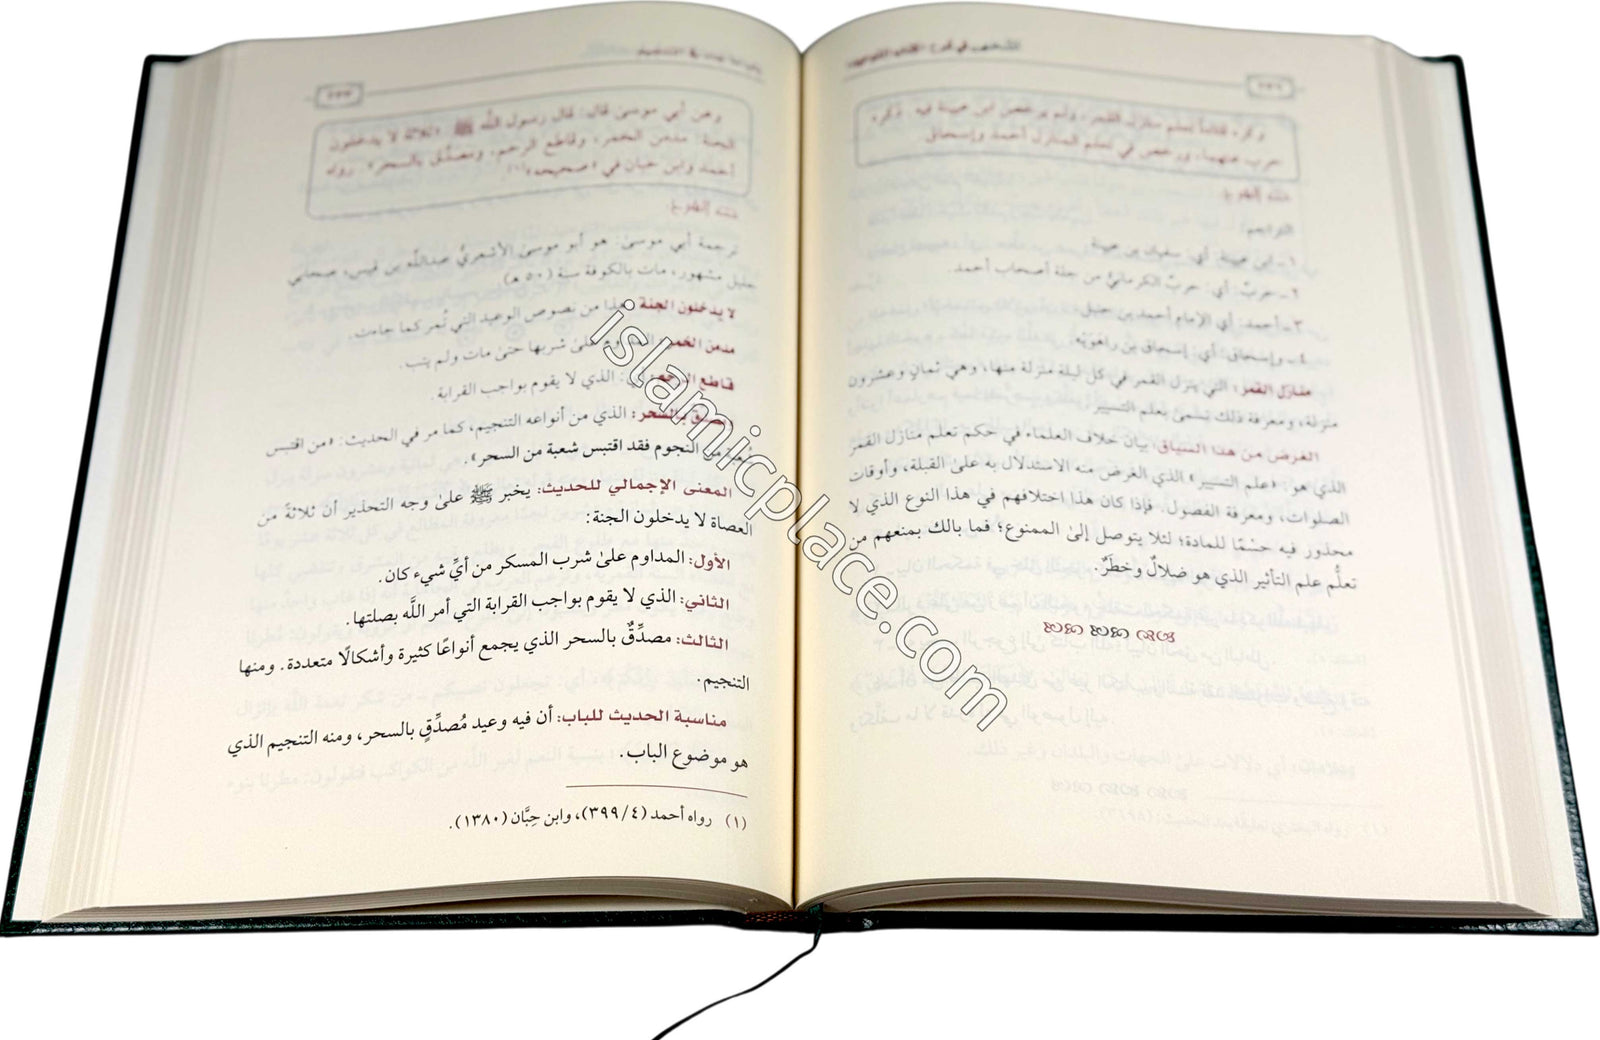 وكره قتادة تعلم منازل القمر، ولم يرخص ابن عيينة فيه. ذكره
حرب عنهما، ورخص في تعلم المنازل أحمد وإسحاق.
التراجم:
١- ابن عيينة: أي: سفيان بن عيينة.
٢- حربٌ: أي: حربٌ الكرمانيُّ من جلة أصحاب أحمد.
٣- أحمد: أي الإمام أحمد بن حنبل.
٤- وإسحاق: أي: إسحاق بن راهَوَيْه.
منازل القمر: التي ينزل القمر في كل ليلة منزلة منها، وهي ثمانٍ وعشرون
منزلة، ومعرفة ذلك يسمىٰ بعلم التسيير.
الغرض من هذا السياق: بيان خلاف العلماء في حكم تعلم منازل القمر
الذي هو: «علم التسيير» الذي الغرض منه الاستدلال به علىٰ القبلة، وأوقات
الصلوات، ومعرفة الفصول. فإذا كان هذا اختلافهم في هذا النوع الذي لا
محذور فيه حسْمًا للمادة؛ لئلا يتوصل إلىٰ الممنوع؛ فما بالك بمنعهم من
تعلُّم علم التأثير الذي هو ضلالٌ وخطَرٌ.
وعن أبي موسىٰ قال: قال رسول الله ﷺ: «ثلاثة لا يدخلون
الجنة: مدمن الخمر، وقاطع الرحم، ومصدِّق بالسحر» رواه
أحمد وابن حبان في «صحيحه»(١)
ترجمة أبي موسىٰ: هو أبو موسىٰ الأشعريُّ عبدالله بن قيس، صحابي
جليل مشهور، مات بالكوفة سنة (٥٠ هـ)
لا يدخلون الجنة: هذا من نصوص الوعيد التي تُمر كما جاءت.
مدمن الخمر: علىٰ شربها حتىٰ مات ولم يتب.
قاطع الرحم: أي: الذي لا يقوم بواجب القرابة.
بالسحر: الذي من أنواعه التنجيم، كما مر في الحديث: «من اقتبس
شعبة من النجوم فقد اقتبس شعبة من السحر».
المعنى الإجمالي للحديث: يخبر ﷺ علىٰ وجه التحذير أن ثلاثةً من
العصاة لا يدخلون الجنة:
الأول: المداوم علىٰ شرب المسكر من أيِّ شيء كان.
الثاني: الذي لا يقوم بواجب القرابة التي أمر اللَّه بصلتها.
الثالث: مصدِّقٌ بالسحر الذي يجمع أنواعًا كثيرة وأشكالًا متعددة. ومنها
التنجيم.
مناسبة الحديث للباب: أن فيه وعيد مُصدِّقٍ بالسحر، ومنه التنجيم الذي
هو موضوع الباب.
(١) رواه أحمد (٣٩٩/٤)، وابن حِبَّان (١٣٨٠).
islamicplace.com